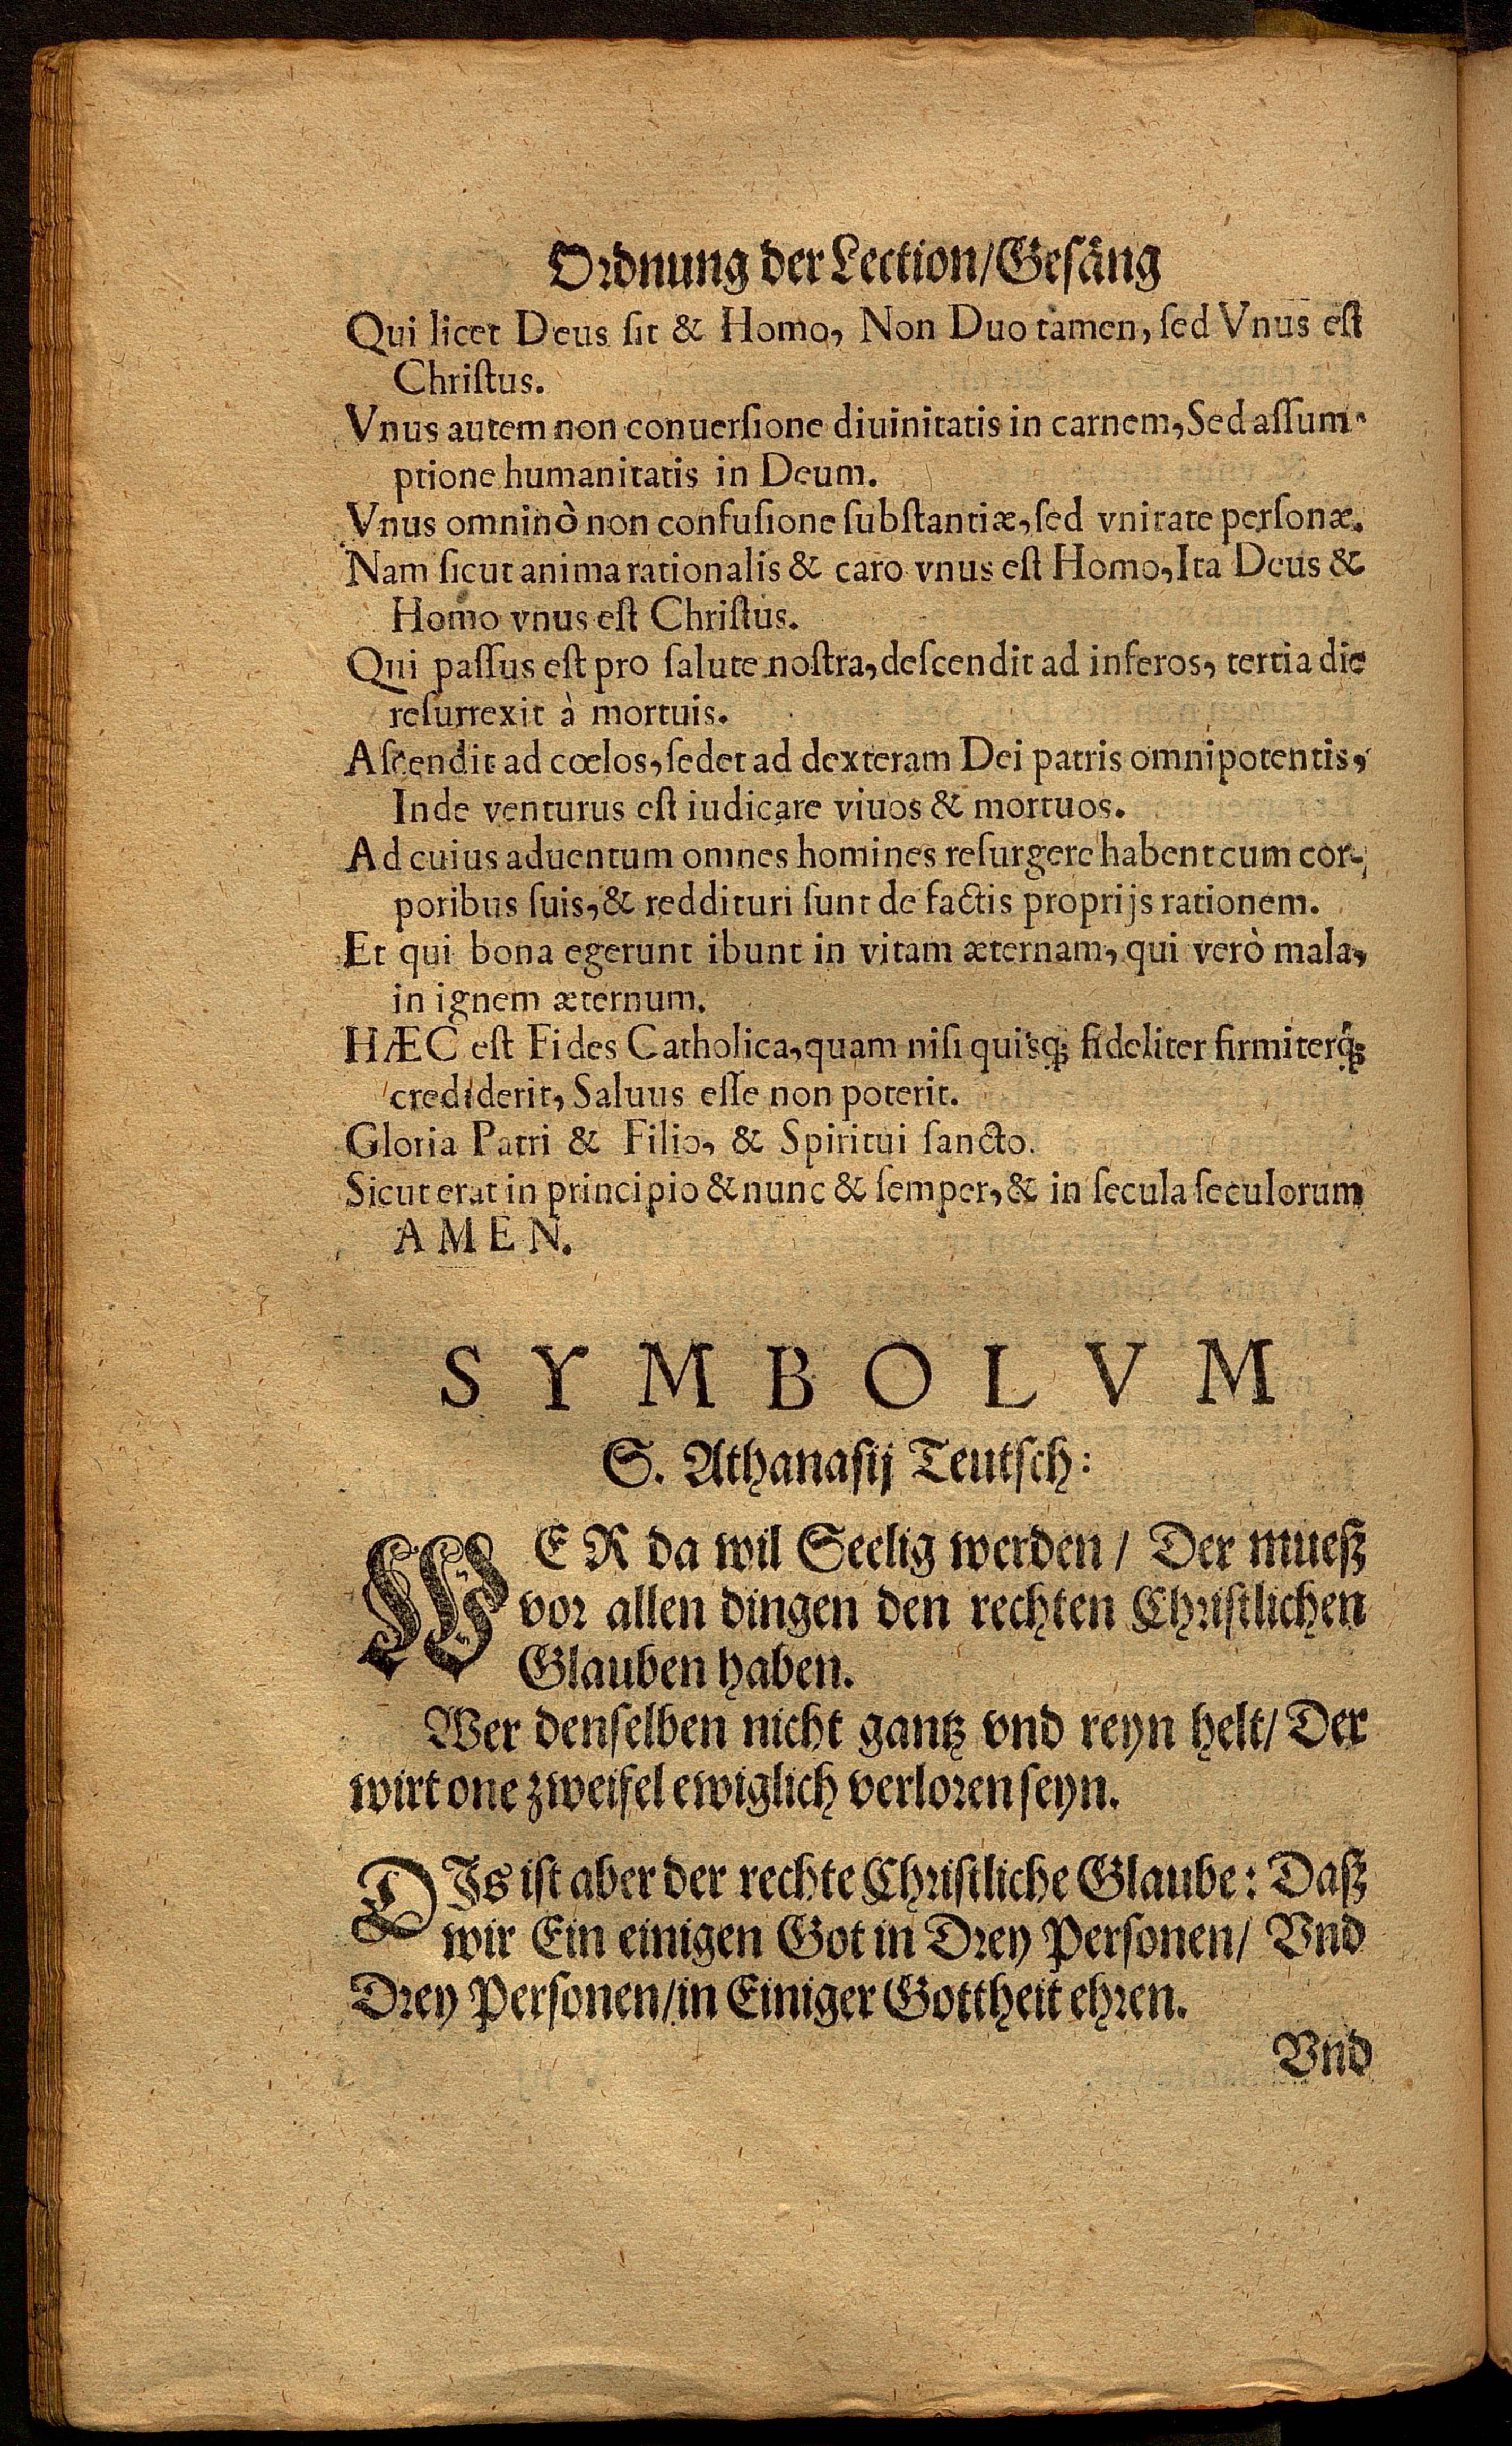 Ordnung der Lection/Gesäng
Qui licet Deus ſit & Homo, Non Duo tamen, ſed Vnus eſt
Chriſtus.
Vnus autem non conuerſione diuinitatis in carnem, Sed aſſum-
ptione humanitatis in Deum.
Vnus omninò non confuſione ſubſtantiæ, ſed vnitate perſonæ.
Nam ſicut anima rationalis & caro vnus eſt Homo, Ita Deus &
Homo vnus eſt Chriſtus.
Qui paſſus eſt pro ſalute noſtra, deſcendit ad inferos, tertia die
reſurrexit à mortuis.
Aſcendit ad cœlos, ſedet ad dexteram Dei patris omnipotentis,
Inde venturus eſt iudicare viuos & mortuos.
Ad cuius aduentum omnes homines reſurgere habent cum cor-
poribus ſuis, & reddituri ſunt de factis proprijs rationem.
Et qui bona egerunt ibunt in vitam æternam, qui verò mala,
in ignem æternum.
HÆC eſt Fides Catholica, quam niſi quisq; fideliter firmiterq́;
crediderit, Saluus eſſe non poterit.
Gloria Patri & Filio, & Spiritui ſancto.
Sicut erat in principio & nunc & ſemper, & in ſecula ſeculorum
AMEN.
SYMBOLVM
S. Athanaſij Teutſch:
WER da wil Seelig werden / Der mueß
vor allen dingen den rechten Chriſtlichen
Glauben haben.
Wer denſelben nicht gantz vnd reyn helt/ Der
wirt one zweifel ewiglich verloren ſeyn.
DIs iſt aber der rechte Chriſtliche Glaube: Daß
wir Ein einigen Got in Drey Perſonen/ Vnd
Drey Perſonen/in Einiger Gottheit ehren.
Vnd